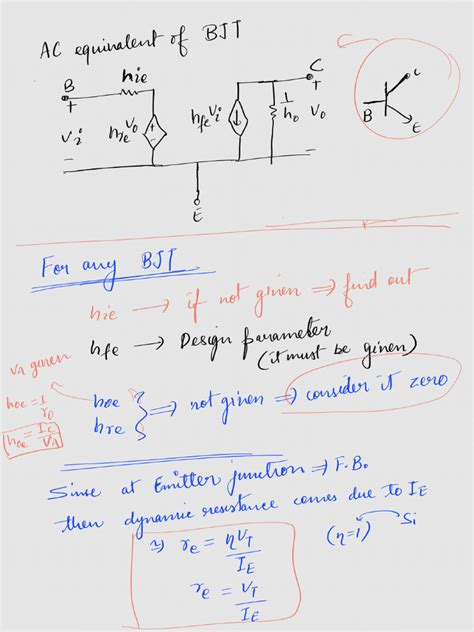 AC equivalent of BJT
B hie C
+ +
Vi hreVo hfeVi 1/ho Vo
- -
E
B C E
For any BJT
hie → if not given ⇒ find out
hfe → Design parameter
(it must be given)
VA given
hoe
hre } ⇒ not given ⇒ consider it zero
hoe = 1/ro
hoe = IC/VA
Since at Emitter junction ⇒ F.B.
then dynamic resistance comes due to IE
⇒ re = ηVT/IE (η=1) Si
re = VT/IE